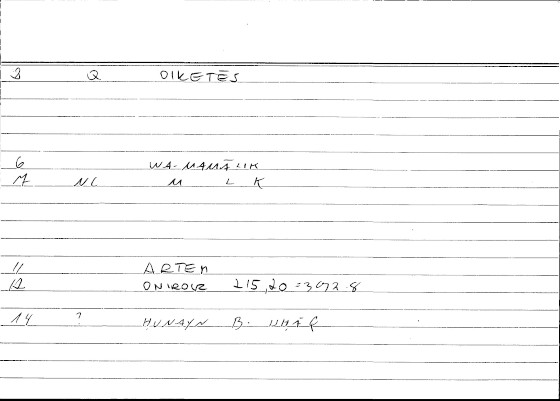 3 Q OIKETĒS
6 WA-MAMĀLIK
7 NC M L K
11 ARTEM
12 ONIROCR 215,20 = 372.8
14 ? ḤUNAYN B. ISḤĀQ